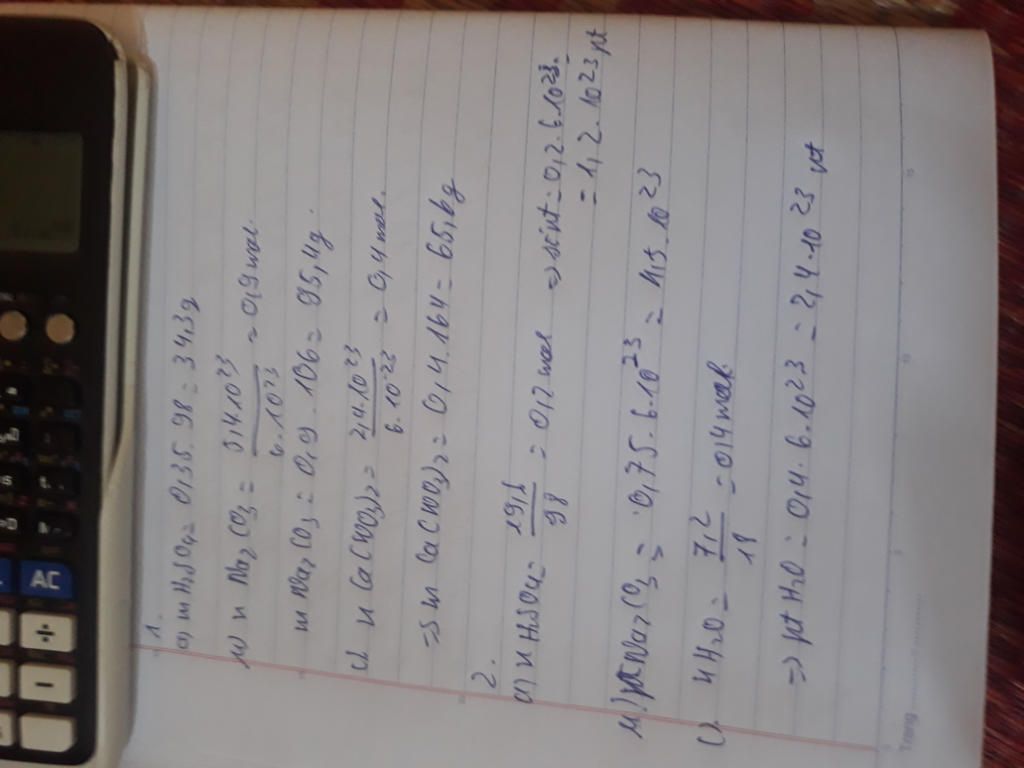 1.
a) mH2SO4 = 0,35. 98 = 34,3g
b) n Na2CO3 = 5,4.10^23 / 6.10^23 = 0,9 mol.
m Na2CO3 = 0,9. 106 = 95,4g.
c) n Ca(NO3)2 = 2,4.10^23 / 6.10^23 = 0,4 mol.
=> m Ca(NO3)2 = 0,4. 164 = 65,6g
2.
a) n H2SO4 = 19,6 / 98 = 0,2 mol => số pt = 0,2. 6.10^23.
= 1,2. 10^23 pt
b) pt Na2CO3 = 0,75. 6.10^23 = 4,5. 10^23
c) nH2O = 7,2 / 18 = 0,4 mol.
=> pt H2O = 0,4. 6.10^23 = 2,4.10^23 pt
Trang
AC
÷
−